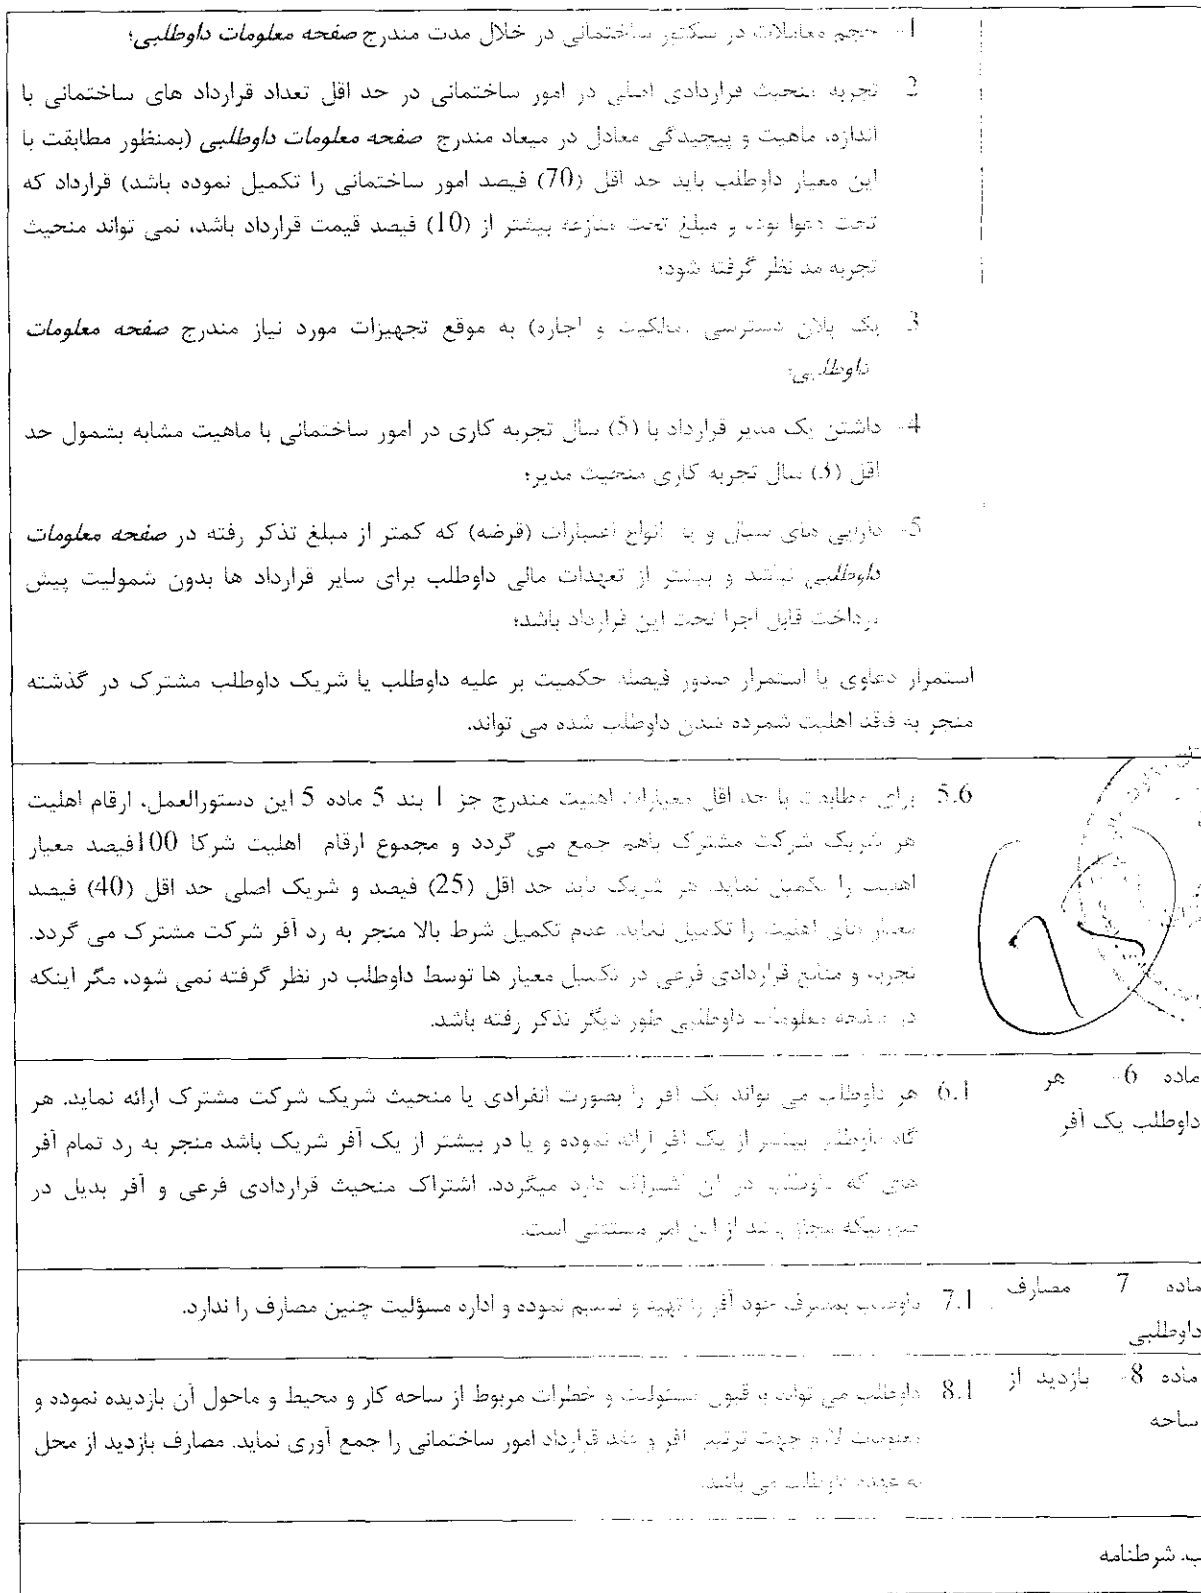 1- حجم معاملات در سکتور ساختمانی در خلال مدت مندرج صفحه معلومات داوطلبی؛
2- تجربه منحیث قراردادی اصلی در امور ساختمانی در حد اقل تعداد قرارداد های ساختمانی با
اندازه، ماهیت و پیچیدگی معادل در میعاد مندرج صفحه معلومات داوطلبی (بمنظور مطابقت با
این معیار داوطلب باید حد اقل (70) فیصد امور ساختمانی را تکمیل نموده باشد) قرارداد که
تحت دعوا بوده و مبلغ تحت منازعه بیشتر از (10) فیصد قیمت قرارداد باشد، نمی تواند منحیث
تجربه مد نظر گرفته شود؛
3- یک پلان دسترسی (مالکیت و اجاره) به موقع تجهیزات مورد نیاز مندرج صفحه معلومات
داوطلبی؛
4- داشتن یک مدیر قرارداد با (5) سال تجربه کاری در امور ساختمانی با ماهیت مشابه بشمول حد
اقل (3) سال تجربه کاری منحیث مدیر؛
5- دارایی های سیال و یا انواع اعتبارات (قرضه) که کمتر از مبلغ تذکر رفته در صفحه معلومات
داوطلبی نباشد و بیشتر از تعهدات مالی داوطلب برای سایر قرارداد ها بدون شمولیت پیش
پرداخت قابل اجرا تحت این قرارداد باشد؛
استمرار دعاوی یا استمرار صدور فیصله حکمیت بر علیه داوطلب یا شریک داوطلب مشترک در گذشته
منجر به فاقد اهلیت شمرده شدن داوطلب شده می تواند.
5.6 برای مطابقت با حد اقل معیارات اهلیت مندرج جز 1 بند 5 ماده 5 این دستورالعمل، ارقام اهلیت
هر شریک شرکت مشترک باهم جمع می گردد و مجموع ارقام اهلیت شرکا 100فیصد معیار
اهلیت را تکمیل نماید. هر شریک باید حد اقل (25) فیصد و شریک اصلی حد اقل (40) فیصد
معیار های اهلیت را تکمیل نماید. عدم تکمیل شرط بالا منجر به رد آفر شرکت مشترک می گردد.
تجربه و منابع قراردادی فرعی در تکمیل معیار ها توسط داوطلب در نظر گرفته نمی شود، مگر اینکه
در صفحه معلومات داوطلبی طور دیگر تذکر رفته باشد.
ماده 6- هر
داوطلب یک آفر
6.1 هر داوطلب می تواند یک آفر را بصورت انفرادی یا منحیث شریک شرکت مشترک ارائه نماید. هر
گاه داوطلب بیشتر از یک آفر ارائه نموده و یا در بیشتر از یک آفر شریک باشد منجر به رد تمام آفر
های که داوطلب در آن اشتراک دارد میگردد. اشتراک منحیث قراردادی فرعی و آفر بدیل در
صورتیکه مجاز باشد از این امر مستثنی است.
ماده 7 مصارف
داوطلبی
7.1 داوطلب بمصرف خود آفر را تهیه و تسلیم نموده و اداره مسؤلیت چنین مصارف را ندارد.
ماده 8- بازدید از
ساحه
8.1 داوطلب می تواند با قبول مسئولیت و خطرات مربوط از ساحه کار و محیط و ماحول آن بازدیده نموده و
معلومات لازم جهت ترتیب آفر و عقد قرارداد امور ساختمانی را جمع آوری نماید. مصارف بازدید از محل
به عهده داوطلب می باشد.
ب. شرطنامه